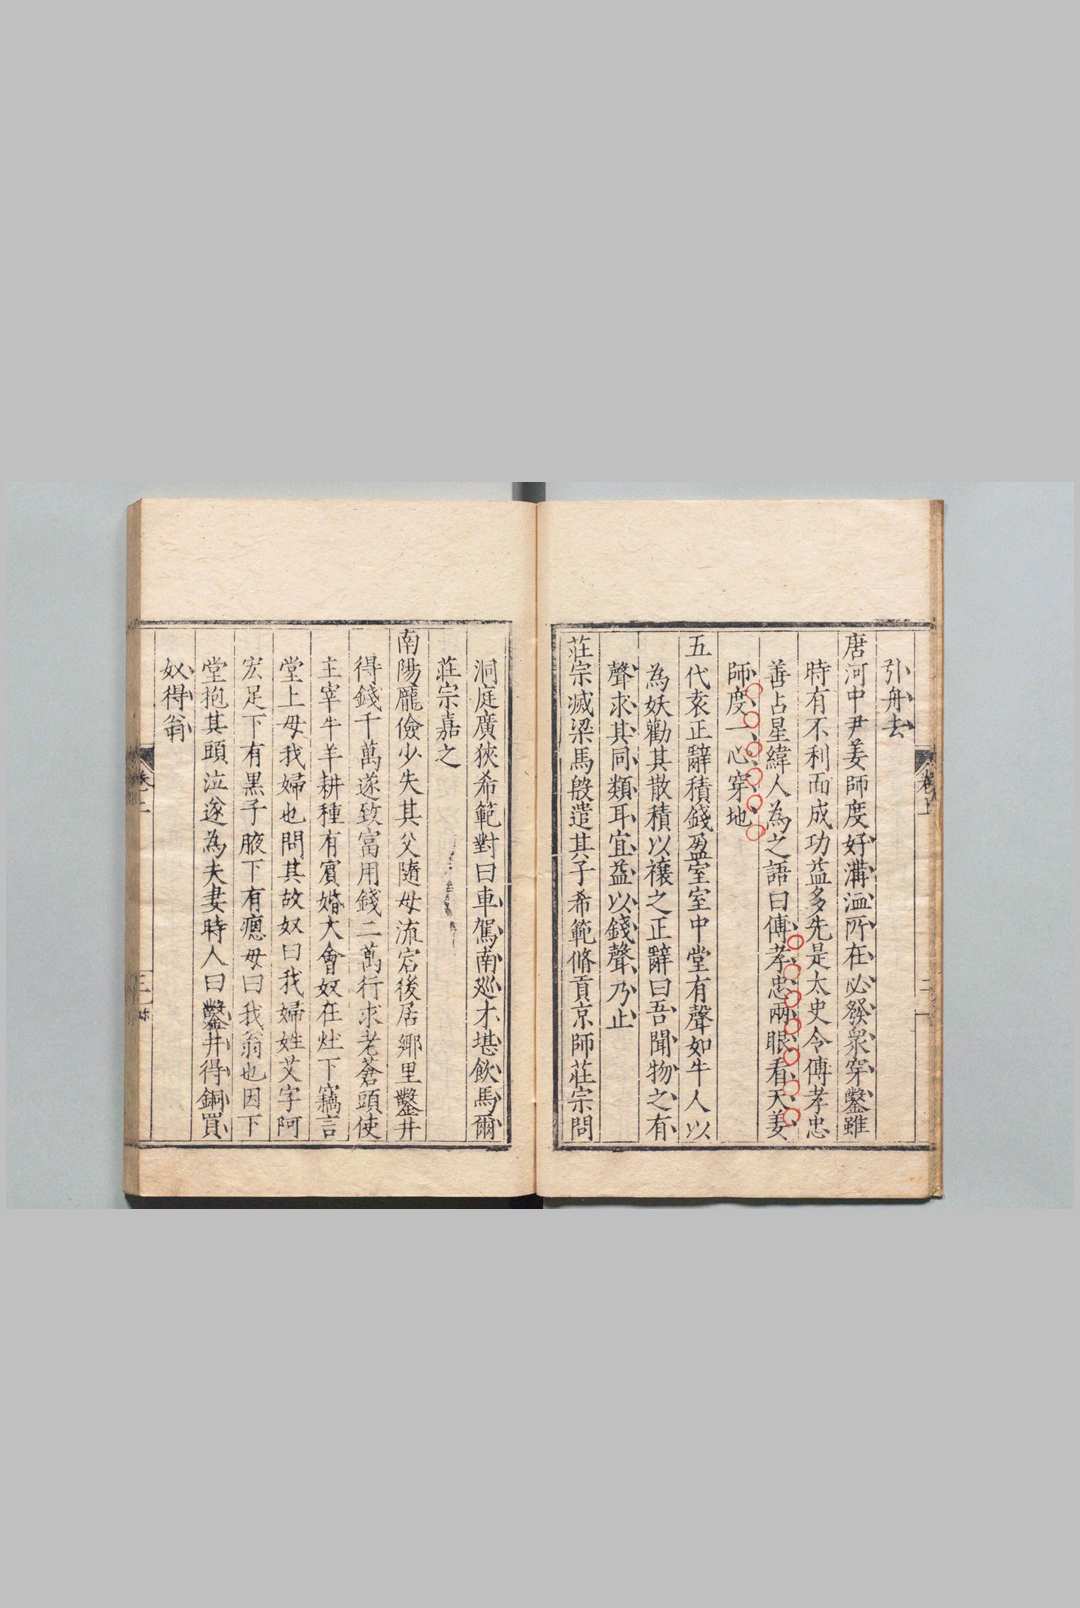 引舟去
唐河中尹姜師度好溝洫所在必發眾穿鑿雖
時有不利而成功益多先是太史令傅孝忠
善占星緯人為之語曰傅孝忠兩眼看天姜
師度一心穿地
五代袁正辭積錢盈室室中堂有聲如牛人以
為妖勸其散積以禳之正辭曰吾聞物之有
聲求其同類耳宜益以錢聲乃止
莊宗滅梁馬殷遣其子希範脩貢京師莊宗問
洞庭廣狹希範對曰車駕南廵才堪飲馬爾
莊宗嘉之
南陽龐儉少失其父隨母流宕後居鄉里鑿井
得錢千萬遂致富用錢二萬行求老蒼頭使
主宰牛羊耕種有賓婚大會奴在灶下竊言
堂上母我婦也問其故奴曰我婦姓艾字阿
宏足下有黑子腋下有瘜母曰我翁也因下
堂抱其頭泣遂為夫妻時人曰鑿井得銅買
奴得翁